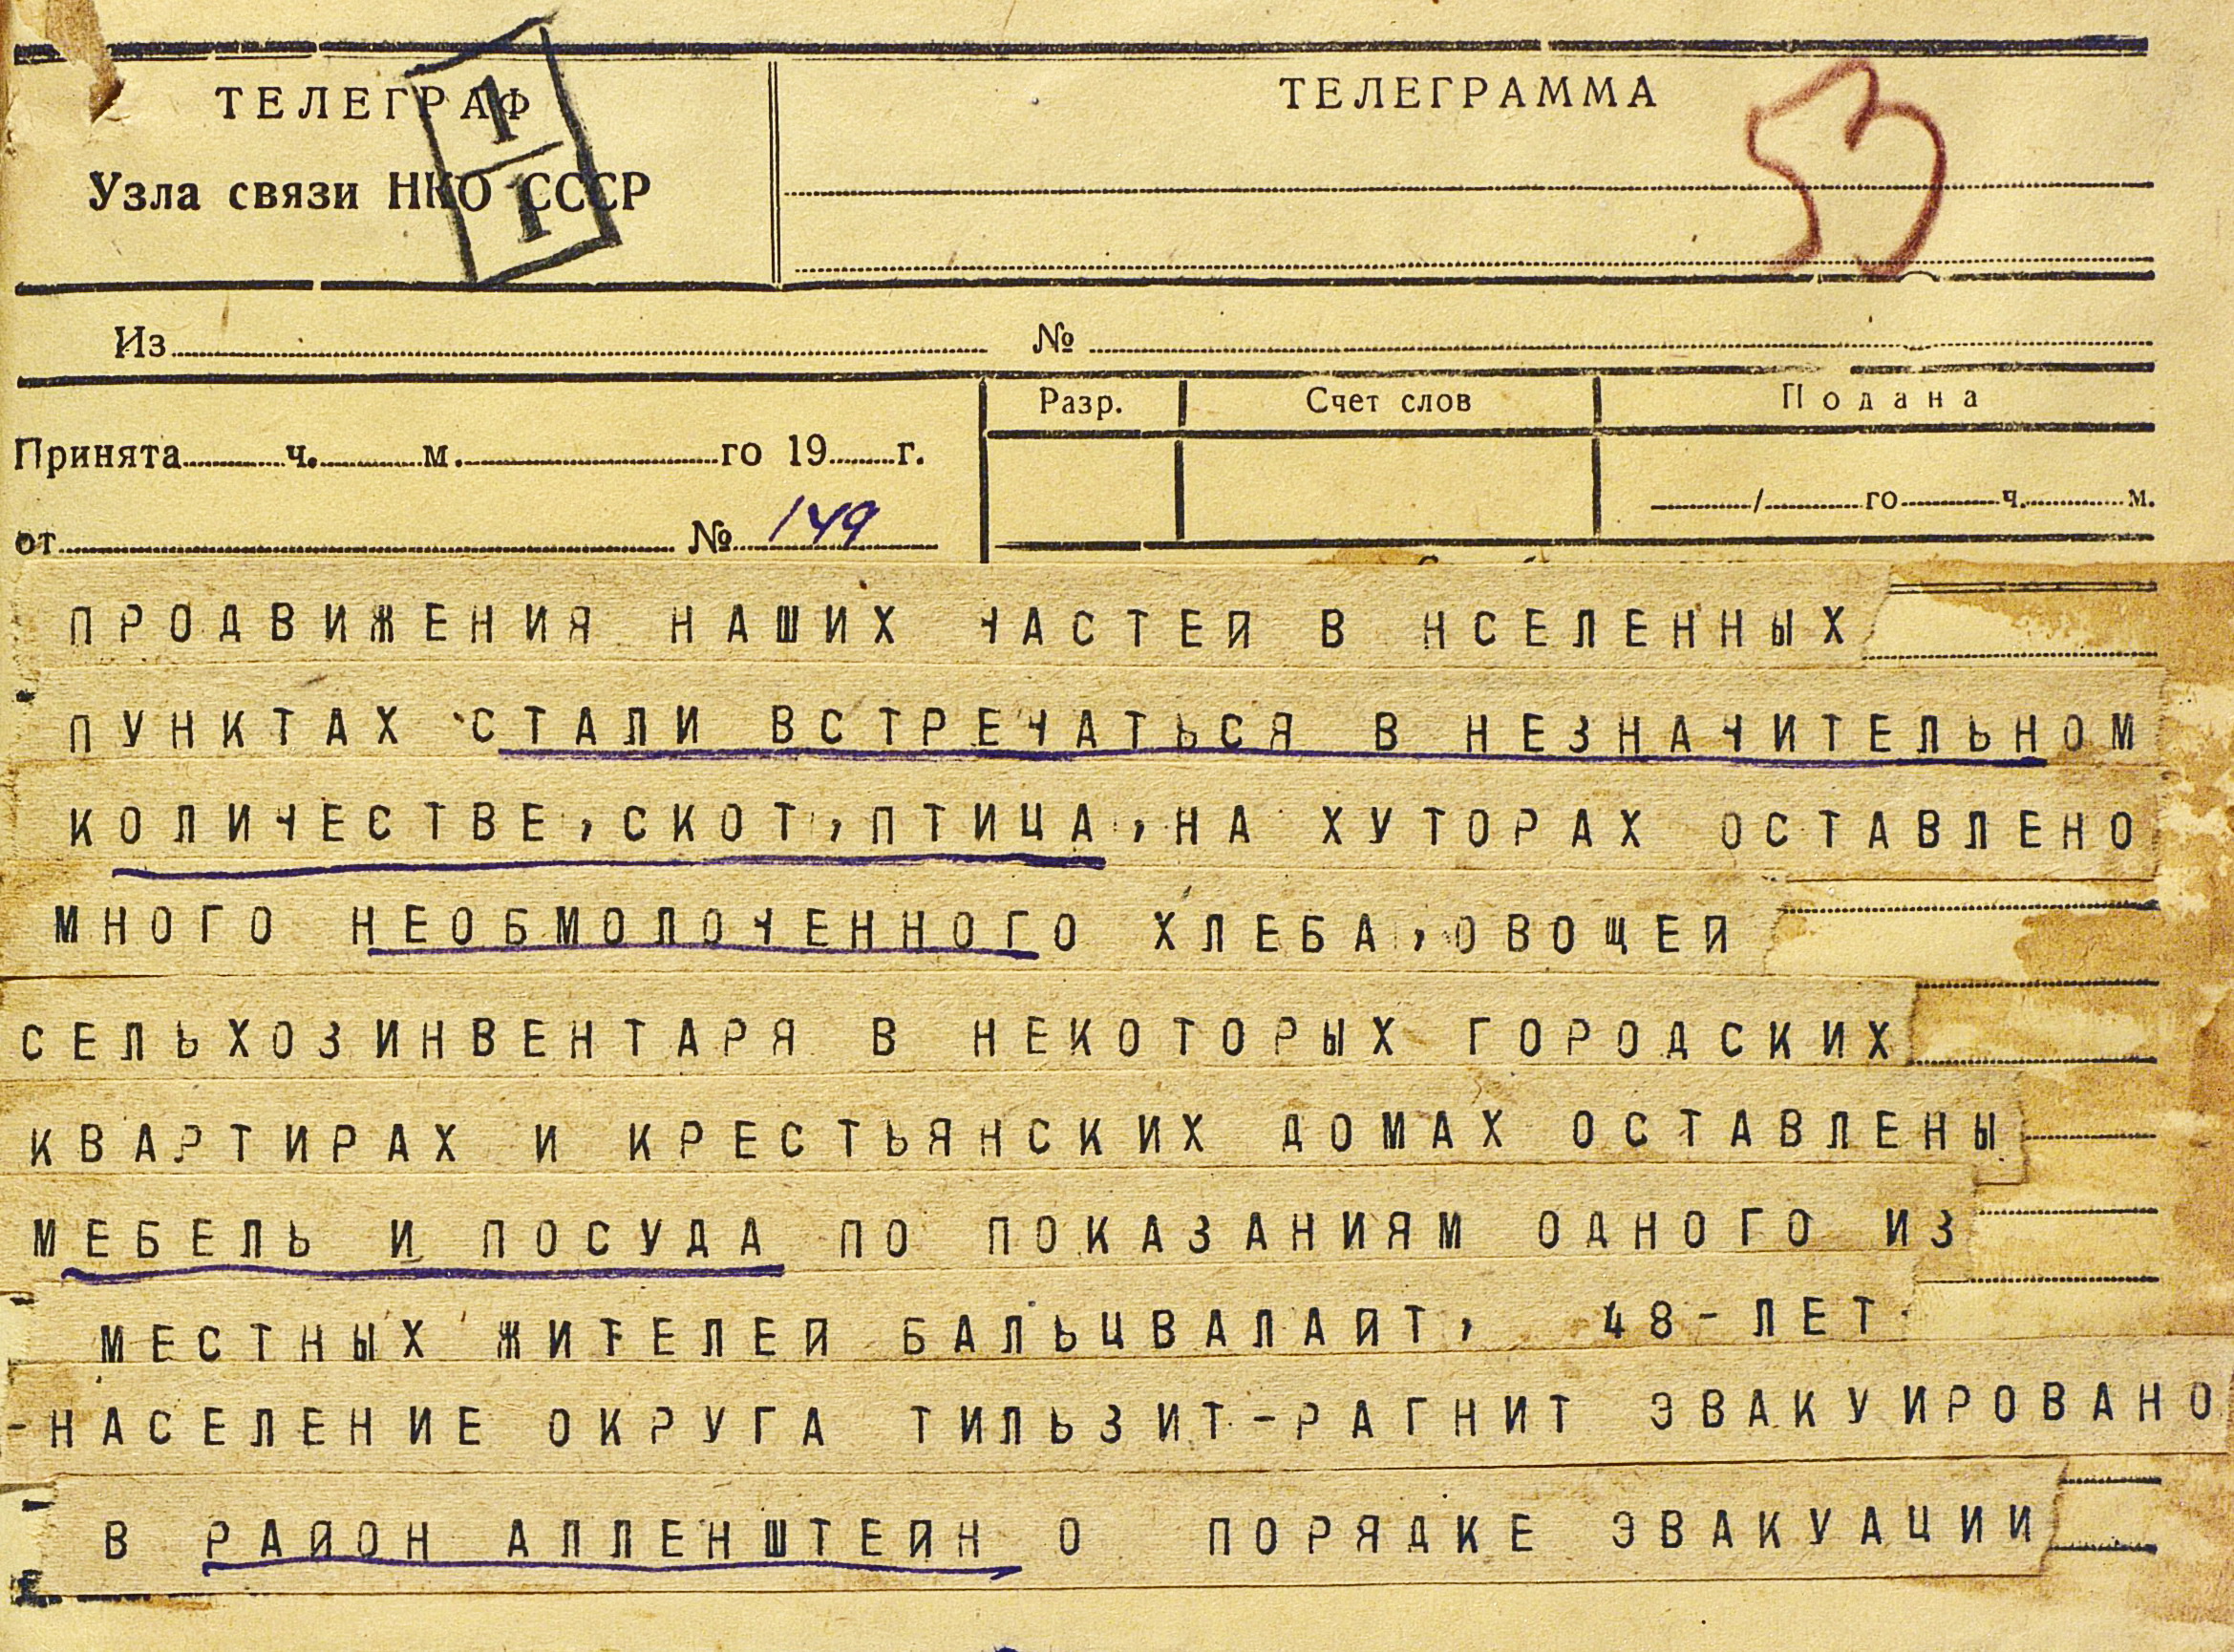 ТЕЛЕГРАФ
Узла связи НКО СССР
1
1
ТЕЛЕГРАММА
53
Из № 
Принята ч. м. го 19 г.
от № 149
Разр. Счет слов Подана
/ го ч. м.
ПРОДВИЖЕНИЯ НАШИХ ЧАСТЕЙ В НСЕЛЕННЫХ
ПУНКТАХ СТАЛИ ВСТРЕЧАТЬСЯ В НЕЗНАЧИТЕЛЬНОМ
КОЛИЧЕСТВЕ,СКОТ,ПТИЦА,НА ХУТОРАХ ОСТАВЛЕНО
МНОГО НЕОБМОЛОЧЕННОГО ХЛЕБА,ОВОЩЕЙ
СЕЛЬХОЗИНВЕНТАРЯ В НЕКОТОРЫХ ГОРОДСКИХ
КВАРТИРАХ И КРЕСТЬЯНСКИХ ДОМАХ ОСТАВЛЕНЫ
МЕБЕЛЬ И ПОСУДА ПО ПОКАЗАНИЯМ ОДНОГО ИЗ
МЕСТНЫХ ЖИТЕЛЕЙ БАЛЬЦВАЛАЙТ, 48-ЛЕТ
-НАСЕЛЕНИЕ ОКРУГА ТИЛЬЗИТ-РАГНИТ ЭВАКУИРОВАНО
В РАЙОН АЛЛЕНШТЕЙН О ПОРЯДКЕ ЭВАКУАЦИИ